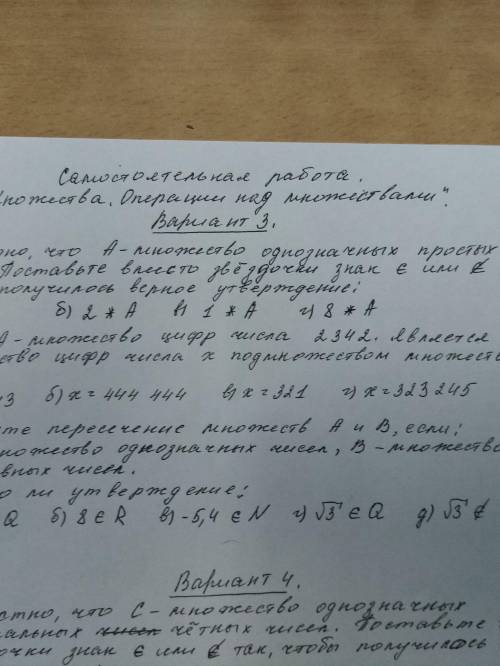 Самостоятельная работа.
ножества. Операции над множествами".
Вариант 3.
но, что A - множество однозначных простых
Поставьте вместо звёздочки знак ∈ или ∉
получилось верное утверждение:
б) 2 * A в) 1 * A г) 8 * A
A - множество цифр числа 2342. Является
ство цифр числа x подмножеством множеств
3 б) x = 444 444 в) x = 321 г) x = 323 245
те пересечение множеств A и B, если:
ножество однозначных чисел, B - множество
вных чисел.
о ли утверждение:
Q б) 8 ∈ R в) -5,4 ∈ N г) √3 ∈ Q д) √3 ∉
Вариант 4.
стно, что C - множество однозначных
альных чисел чётных чисел. Поставьте
очки знак ∈ или ∉ так, чтобы получилось